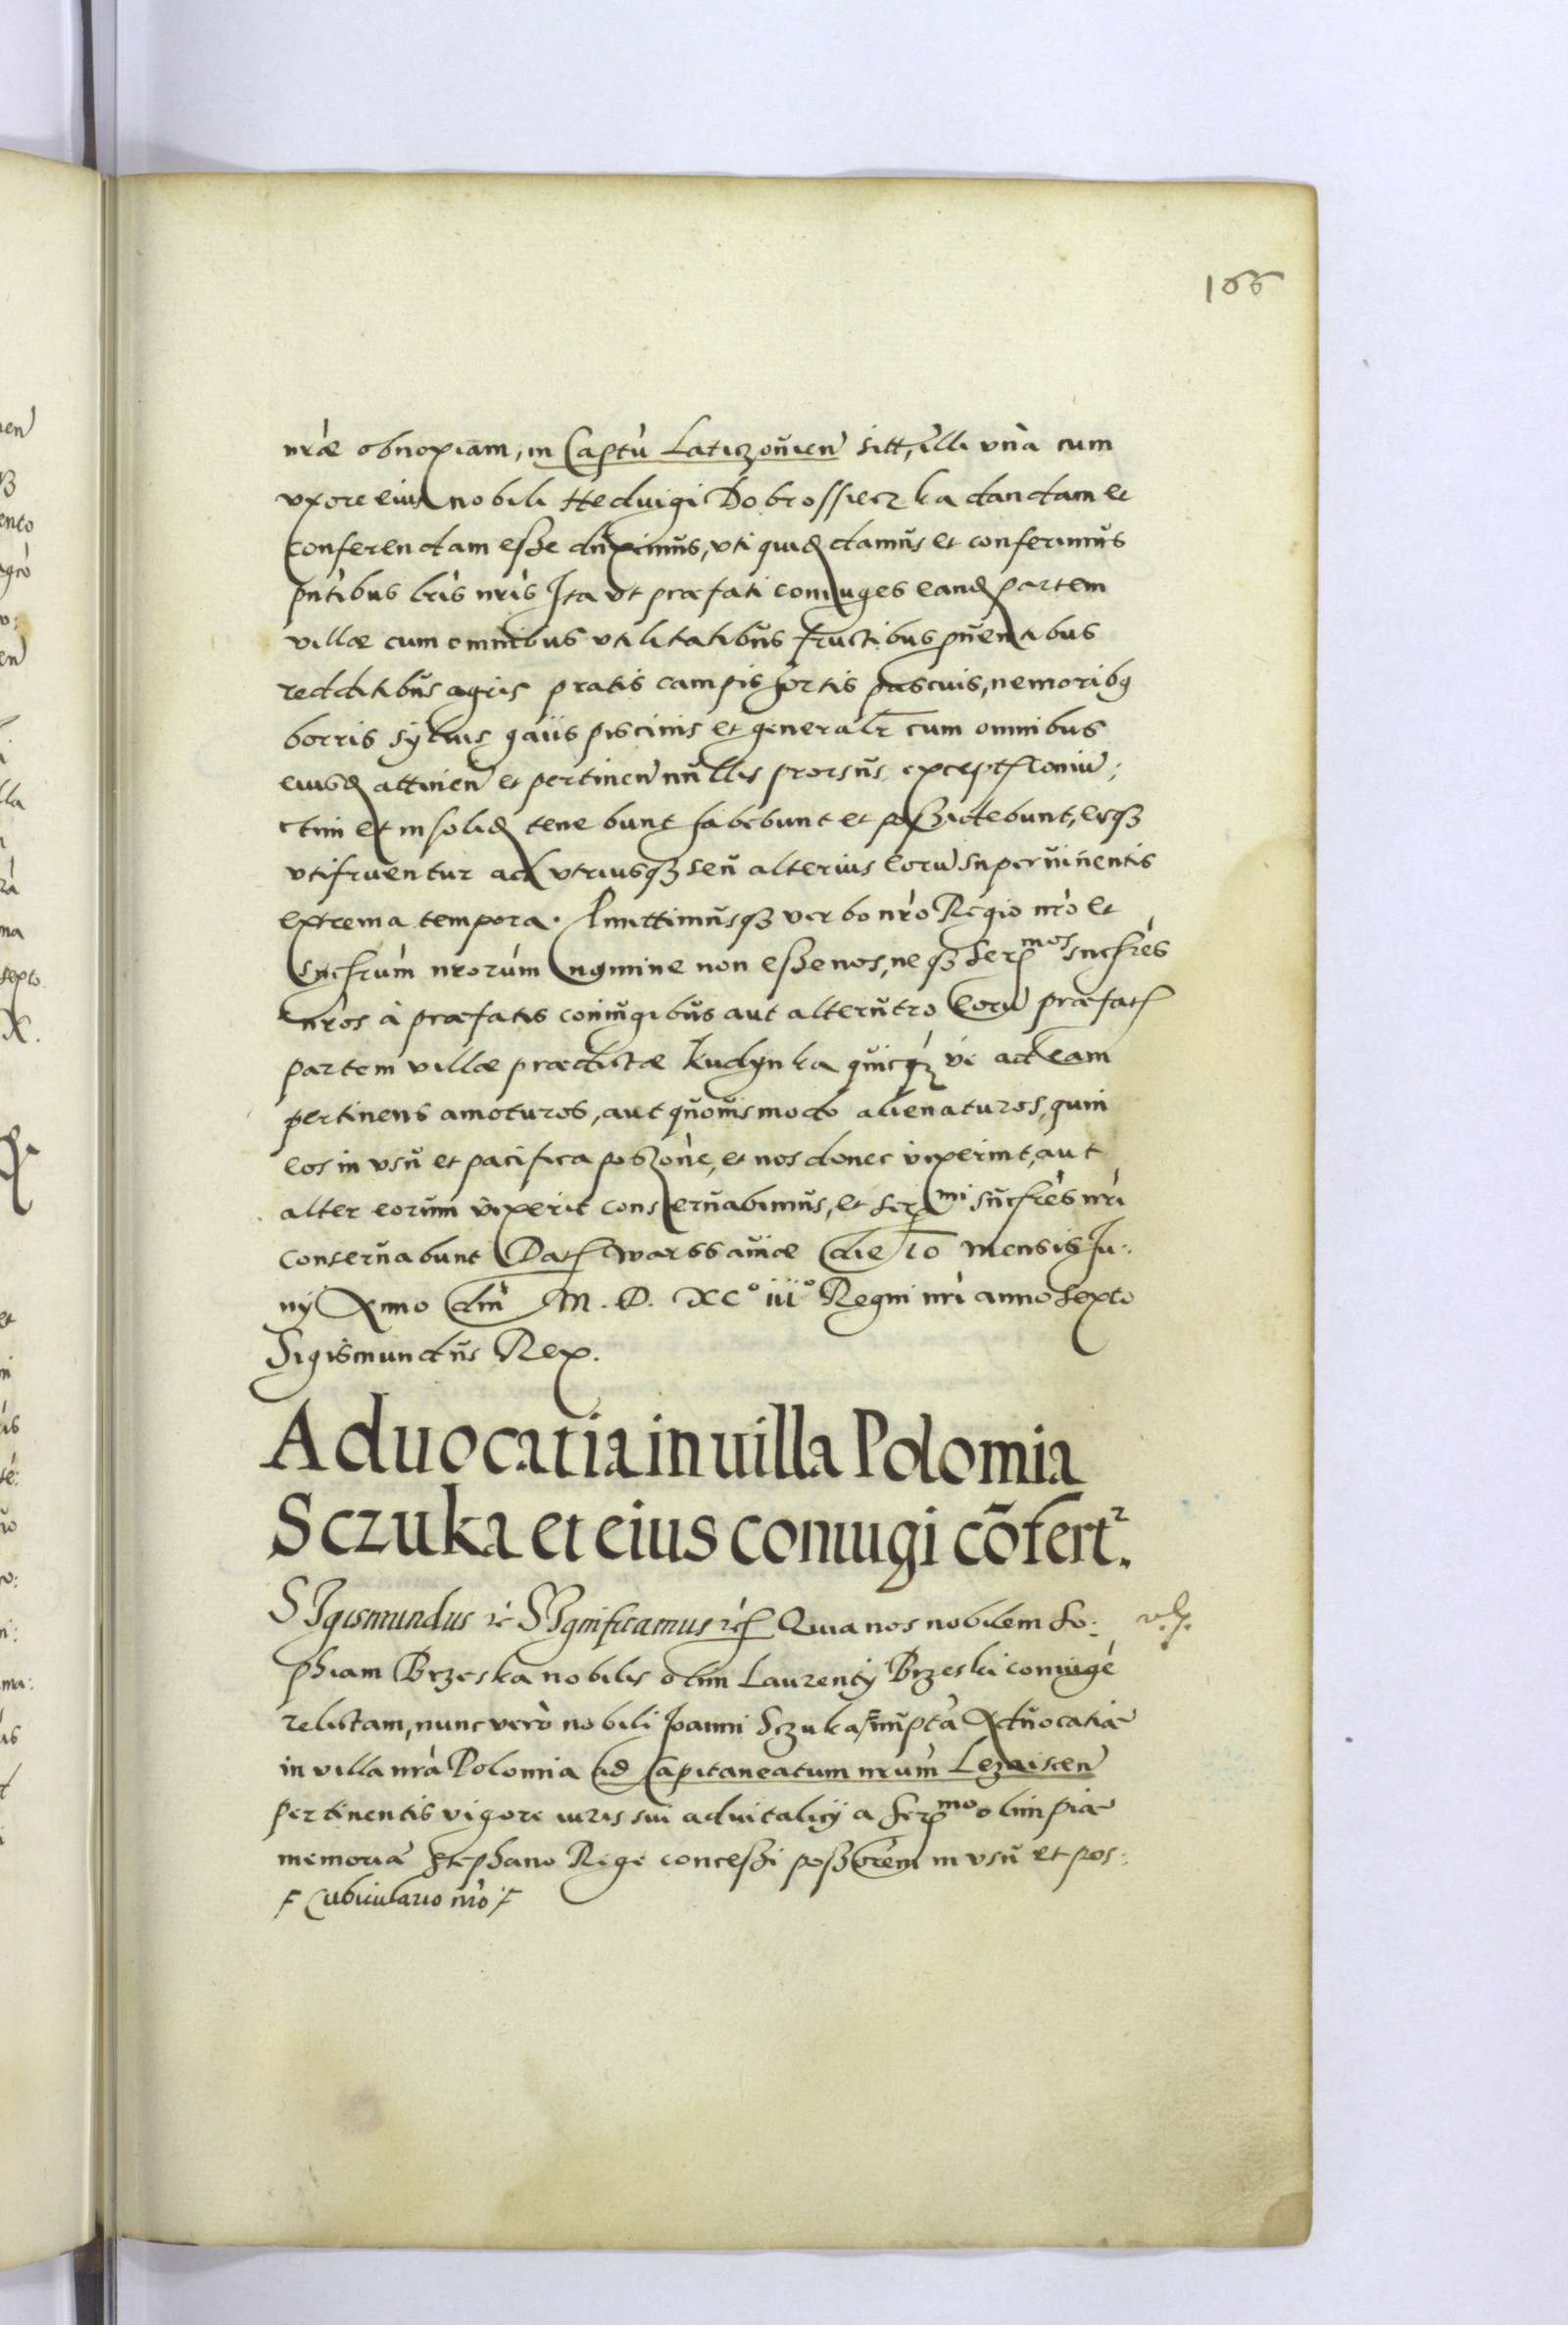 166
nrae obnoxiam, in Captu Laticzouien sitt, illi una cum
uxore eius nobili Heduigi Dobrossieczka dandam et
conferendam esse duximus, uti quid damus et conferimus
pntibus lris nris Ita ut praefati coniuges eand partem
villae cum omnibus utilitatibus fructibus puentibus
redditibus agris pratis campis hortis pascuis, nemoribq
borris syluis gaiis piscinis et generalr cum omnibus
eiusd attinen et pertinen nullis prorsus except coniu:
ctim et in solid tenebunt habebunt et possidebunt, eisq
utifruentur ad utriusq seu alterius eoru superuiuentis
extrema tempora. Pmittimusq verbo nro Regio nro et
Sucsrum nrorum nomine non esse nos, neq Sermos sucsres
nros à praefatis coniugibus aut alterutro eoru praefat
partem villae praedictae Kudynka quicq ve ad eam
pertinens amoturos, aut quouis modo alienaturos, quin
eos in usu et pacifica possone, et nos donec vixerint, aut
alter eorum vixerit conseruabimus, et sermi sucsres nri
conseruabunt Dat Warssauiae die 10 mensis Ju:
nij Anno dni M. D. XC° iii° Regni nri anno sexto
Sigismundus Rex.
Aduocatia in uilla Polomia
Sczuka et eius coniugi cōfert.
SIgismundus rc SIgnificamus rc Quia nos nobilem So:
phiam Brzeska nobilis olim Laurentij Brzeski coniuge
relictam, nunc vero nobili Joanni Sczuka F nupta Aduocatiae
in villa nra Polomia ad Capitaneatum nrum Lezaiscen
pertinentis vigore iuris sui aduitalicij a Sermo olim piae
memoriae Stephano Rege concessi possorem in usu et pos:
F Cubiculario nro F